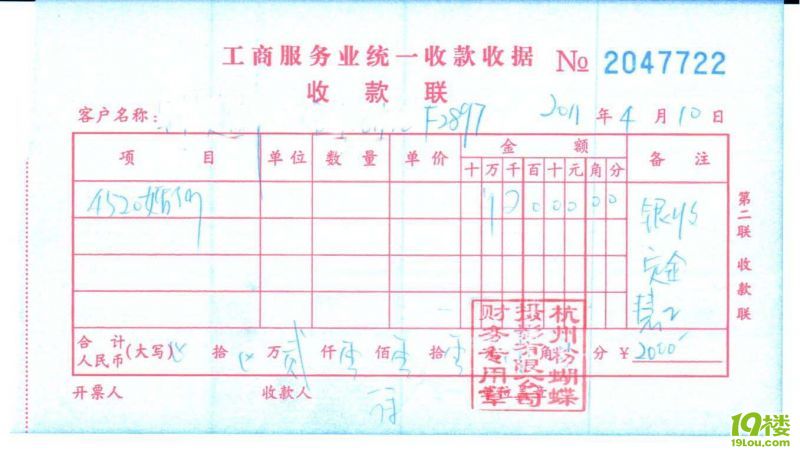 工商服务业统一收款收据 № 2047722
收款联
客户名称： F2897 2011 年 4 月 10 日
项目 单位 数量 单价 金额 备注
十 万 千 百 十 元 角 分
4520婚 ¥ 2 0 0 0 0 0 银
定金
合计人民币(大写) 拾 万 贰 仟 零 佰 零 拾 零 角 分 ¥ 2000
开票人 收款人
第二联 收款联
杭州粉蝴蝶
投影有限公司
财务专用章
19楼
19lou.com